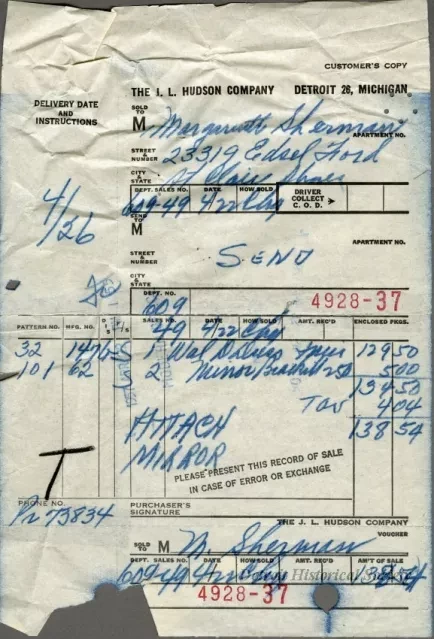 CUSTOMER'S COPY
THE J. L. HUDSON COMPANY DETROIT 26, MICHIGAN
DELIVERY DATE AND INSTRUCTIONS
SOLD TO M Marguerite Sherman
APARTMENT NO.
STREET & NUMBER 23319 Edsel Ford
CITY & STATE St Claire Shores
4/26
DEPT. SALES NO. DATE HOW SOLD DRIVER COLLECT C. O. D.
609-49 4/22 Chg
SEND TO M
APARTMENT NO.
STREET & NUMBER SEND
CITY & STATE
DEPT. NO.
609 4928-37
PATTERN NO. MFG. NO. SALES NO. DATE HOW SOLD AMT. REC'D ENCLOSED PKGS.
49 4/22 Chg
32 1476-S 1 Wal 12950
101 62 2 Mirror Bracket 250 500
13450
Tax 404
ATTACH 13854
MIRROR
PLEASE PRESENT THIS RECORD OF SALE
IN CASE OF ERROR OR EXCHANGE
PHONE NO. PURCHASER'S SIGNATURE
Pr 73834
THE J. L. HUDSON COMPANY
VOUCHER
SOLD TO M M. Sherman
DEPT. SALES NO. DATE HOW SOLD AMT. REC'D AM'T OF SALE
609-49 4/22
4928-37
Historical